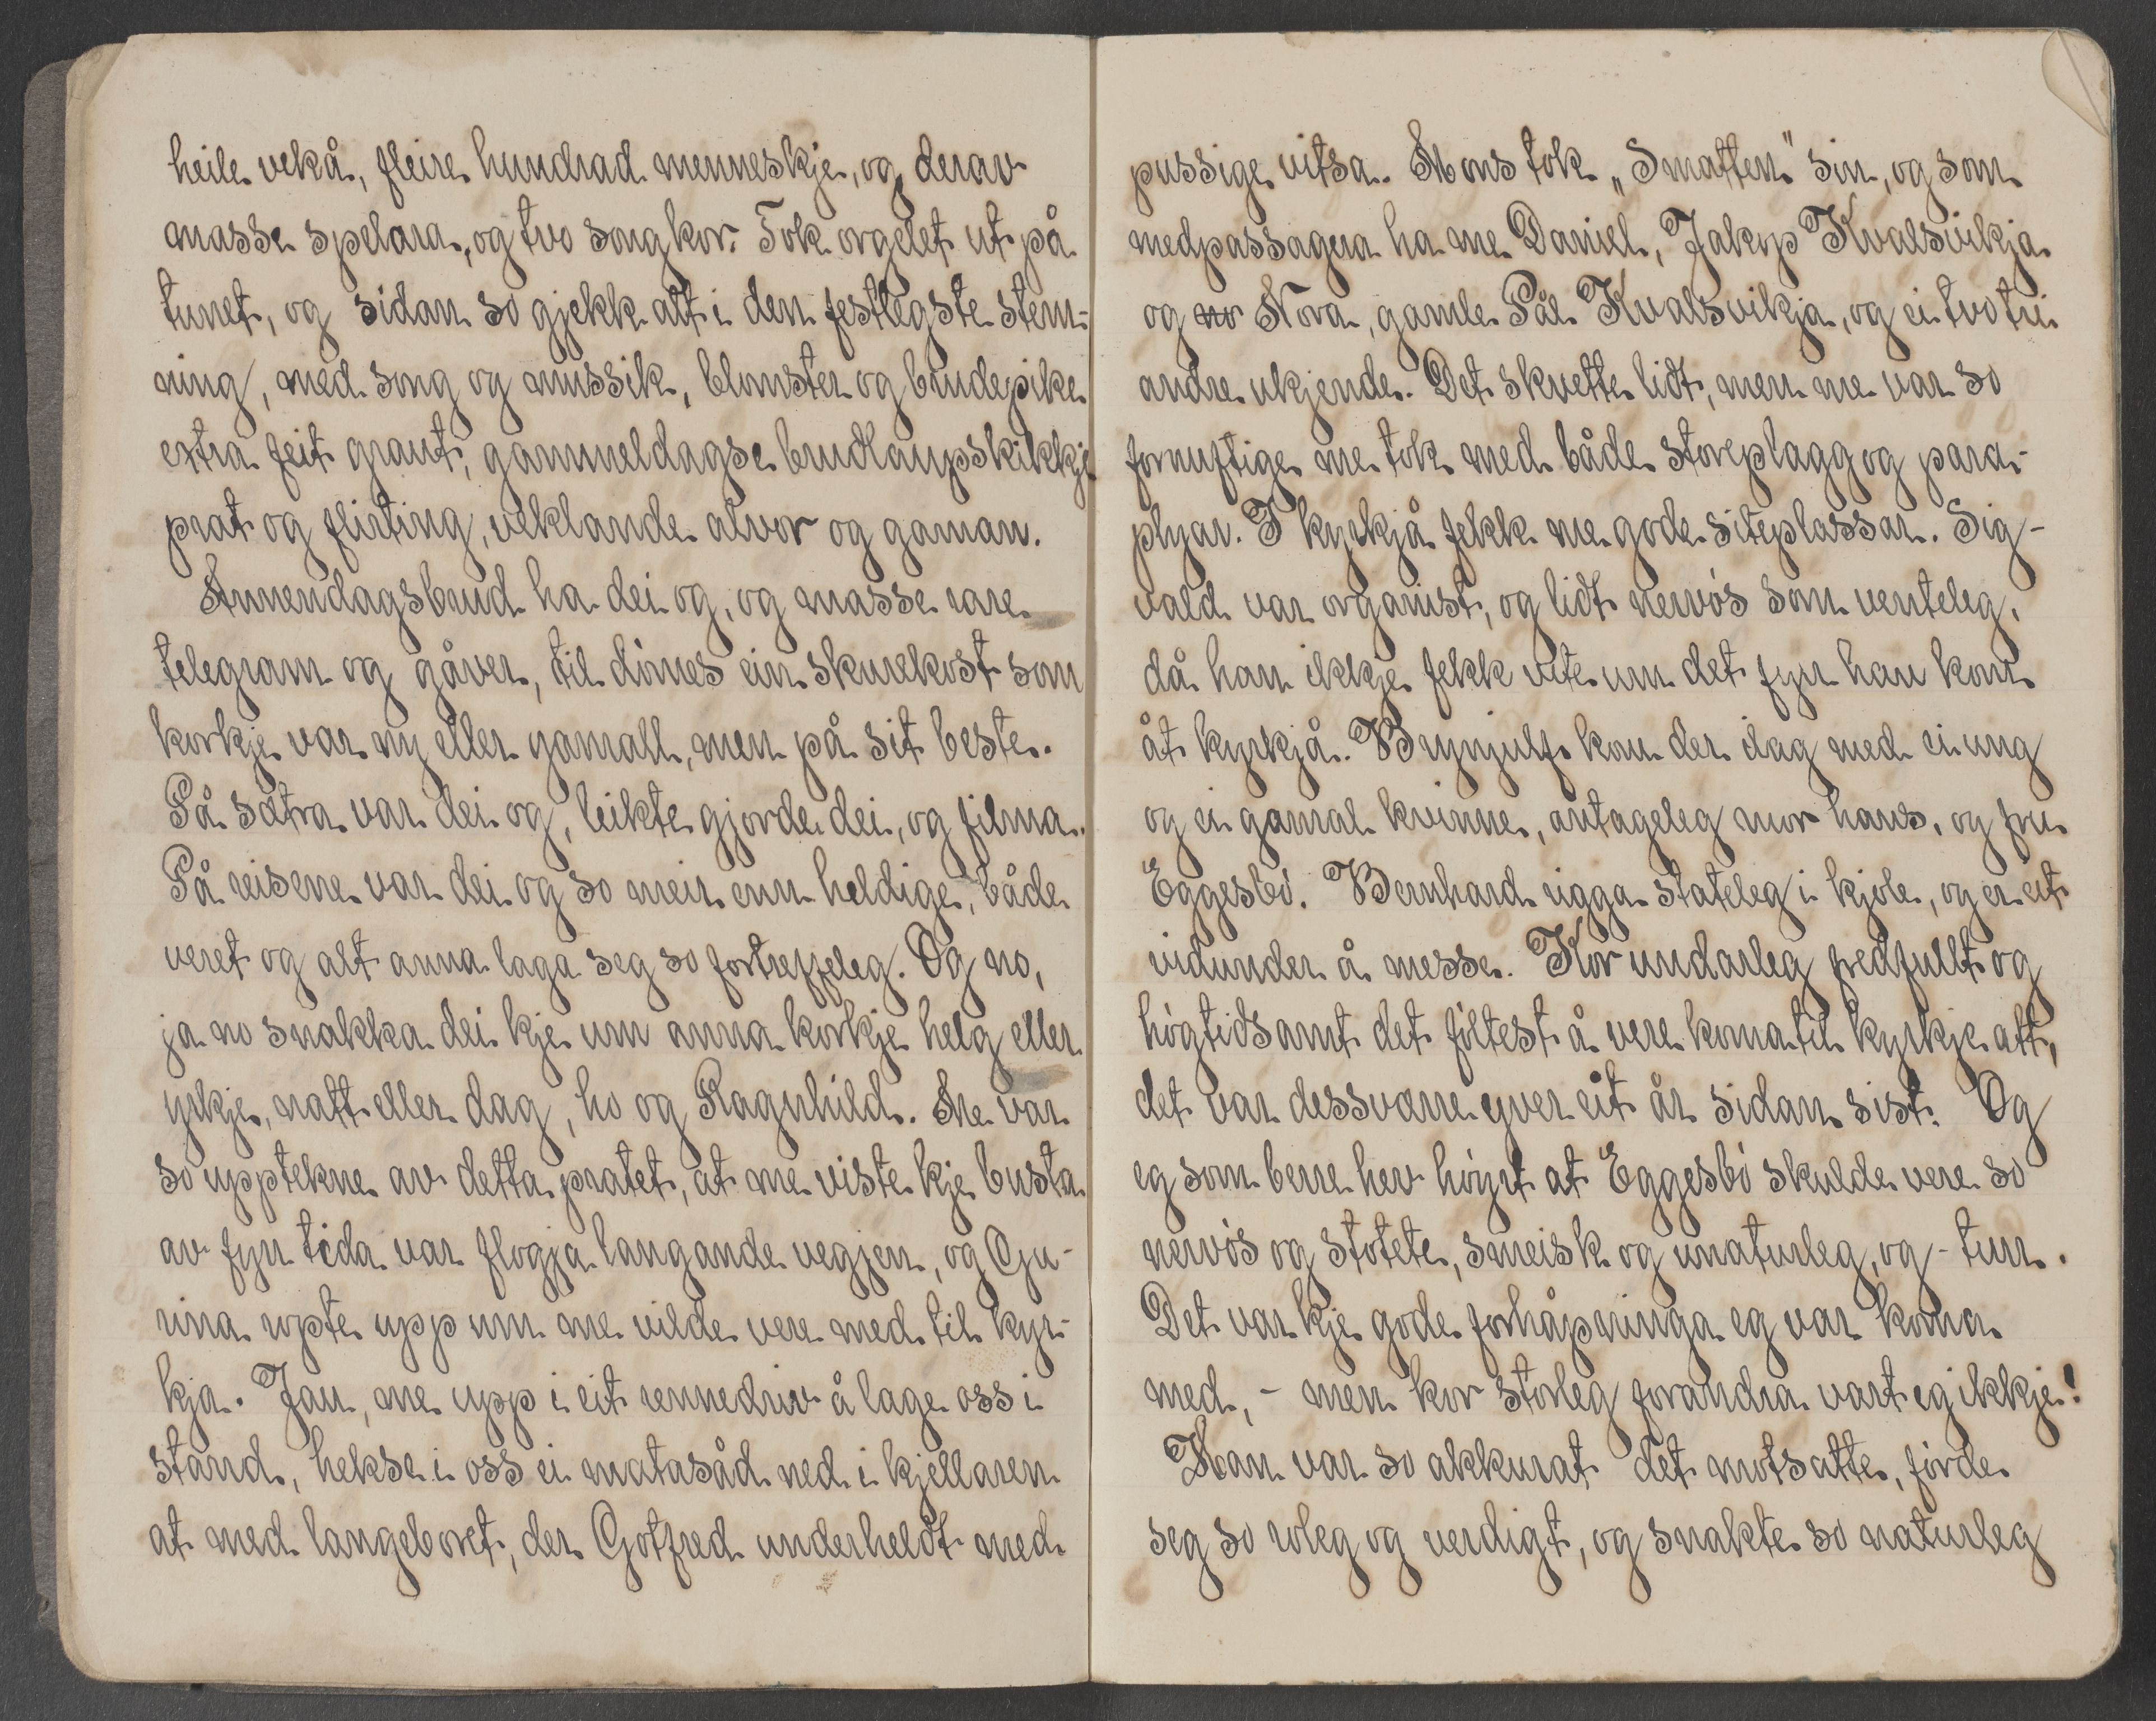 heile vekå, fleire hundrad menneskje, og derav
masse spelara, og tvo songkor. Tok orgelet ut på
tunet, og sidan so gjekk alt i den festlegste stem-
ning, med song og mussik, blomster og brudepike
extra feit graut, gammeldagse brudlaupskikkje
prat og flirting, vekslande alvor og gaman.
Annendagsbrud ha dei og, og masse rare
telegram og gåver, til dömes ein skurekost som
korkje var ny eller gamall, men på sit beste.
På sætra var dei og, leikte gjorde dei, og filma.
På reisene var dei og so meir enn heldige, både
veret og alt anna laga seg so fortreffeleg. Og no,
ja no snakka dei kje um anna korkje helg eller
yrkje, natt eller dag, ho og Ragnhild. Me var
so upptekne av detta pratet, at me viste kje busta
av fyrr tida var flogja langande vegjen, og Gju-
rina ropte upp um me vilde vere med til kyr-
kja. Jau, me upp i eit rennedriv å lage oss i
stand, hekse i oss ei matasåd ned i kjellaren
at med langeboret, der Gotfred underheldt med
pussige vitsa. Mons tok „Smatten" sin, og som
medpassagera ha me Daniel, Jakop Kvalsvikja
og no Nora, gamle Pål Kvalsvikja, og ei tvo tri
andre ukjende. Det skvette lidt, men me var so
fornuftige me tok med både storeplagg og para-
plyar. I kyrkjå fekk me gode siteplassar. Sig-
vald var organist, og lidt nervös som venteleg,
då han ikkje fekk vite um det fyrr han kom
åt kyrkjå. Brynjulf kom der idag med ei ung
og ei gamal kvinne, antageleg mor hans, og fru
Eggesbö. Bernhard rigga stateleg i kjole, og er eit
vidunder å messe. Kor undarleg fredfullt og
högtidsamt det föltest å vere koma til kyrkje att,
det var dessværre yver eit år sidan sist. Og
eg som berre hev höyrt at Eggesbö skulde vere so
nervös og stötete, smeisk og unaturleg, og - turr.
Det var kje gode forhåpninga eg var koma
med, - men kor storleg forandra vart eg ikkje!
Han var so akkurat det motsatte, förde
seg so roleg og verdigt, og snakte so naturleg